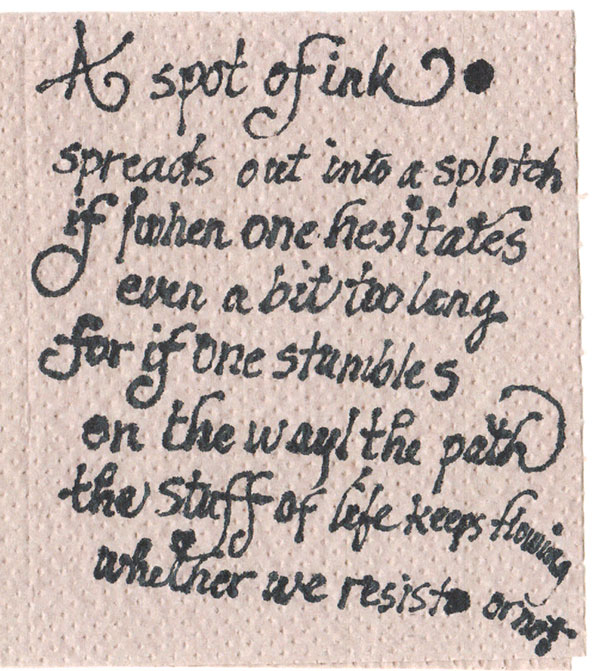 A spot of ink
spreads out into a splotch
if/when one hesitates
even a bit too long
for if one stumbles
on the way/the path
the stuff of life keeps flowing
whether we resist or not